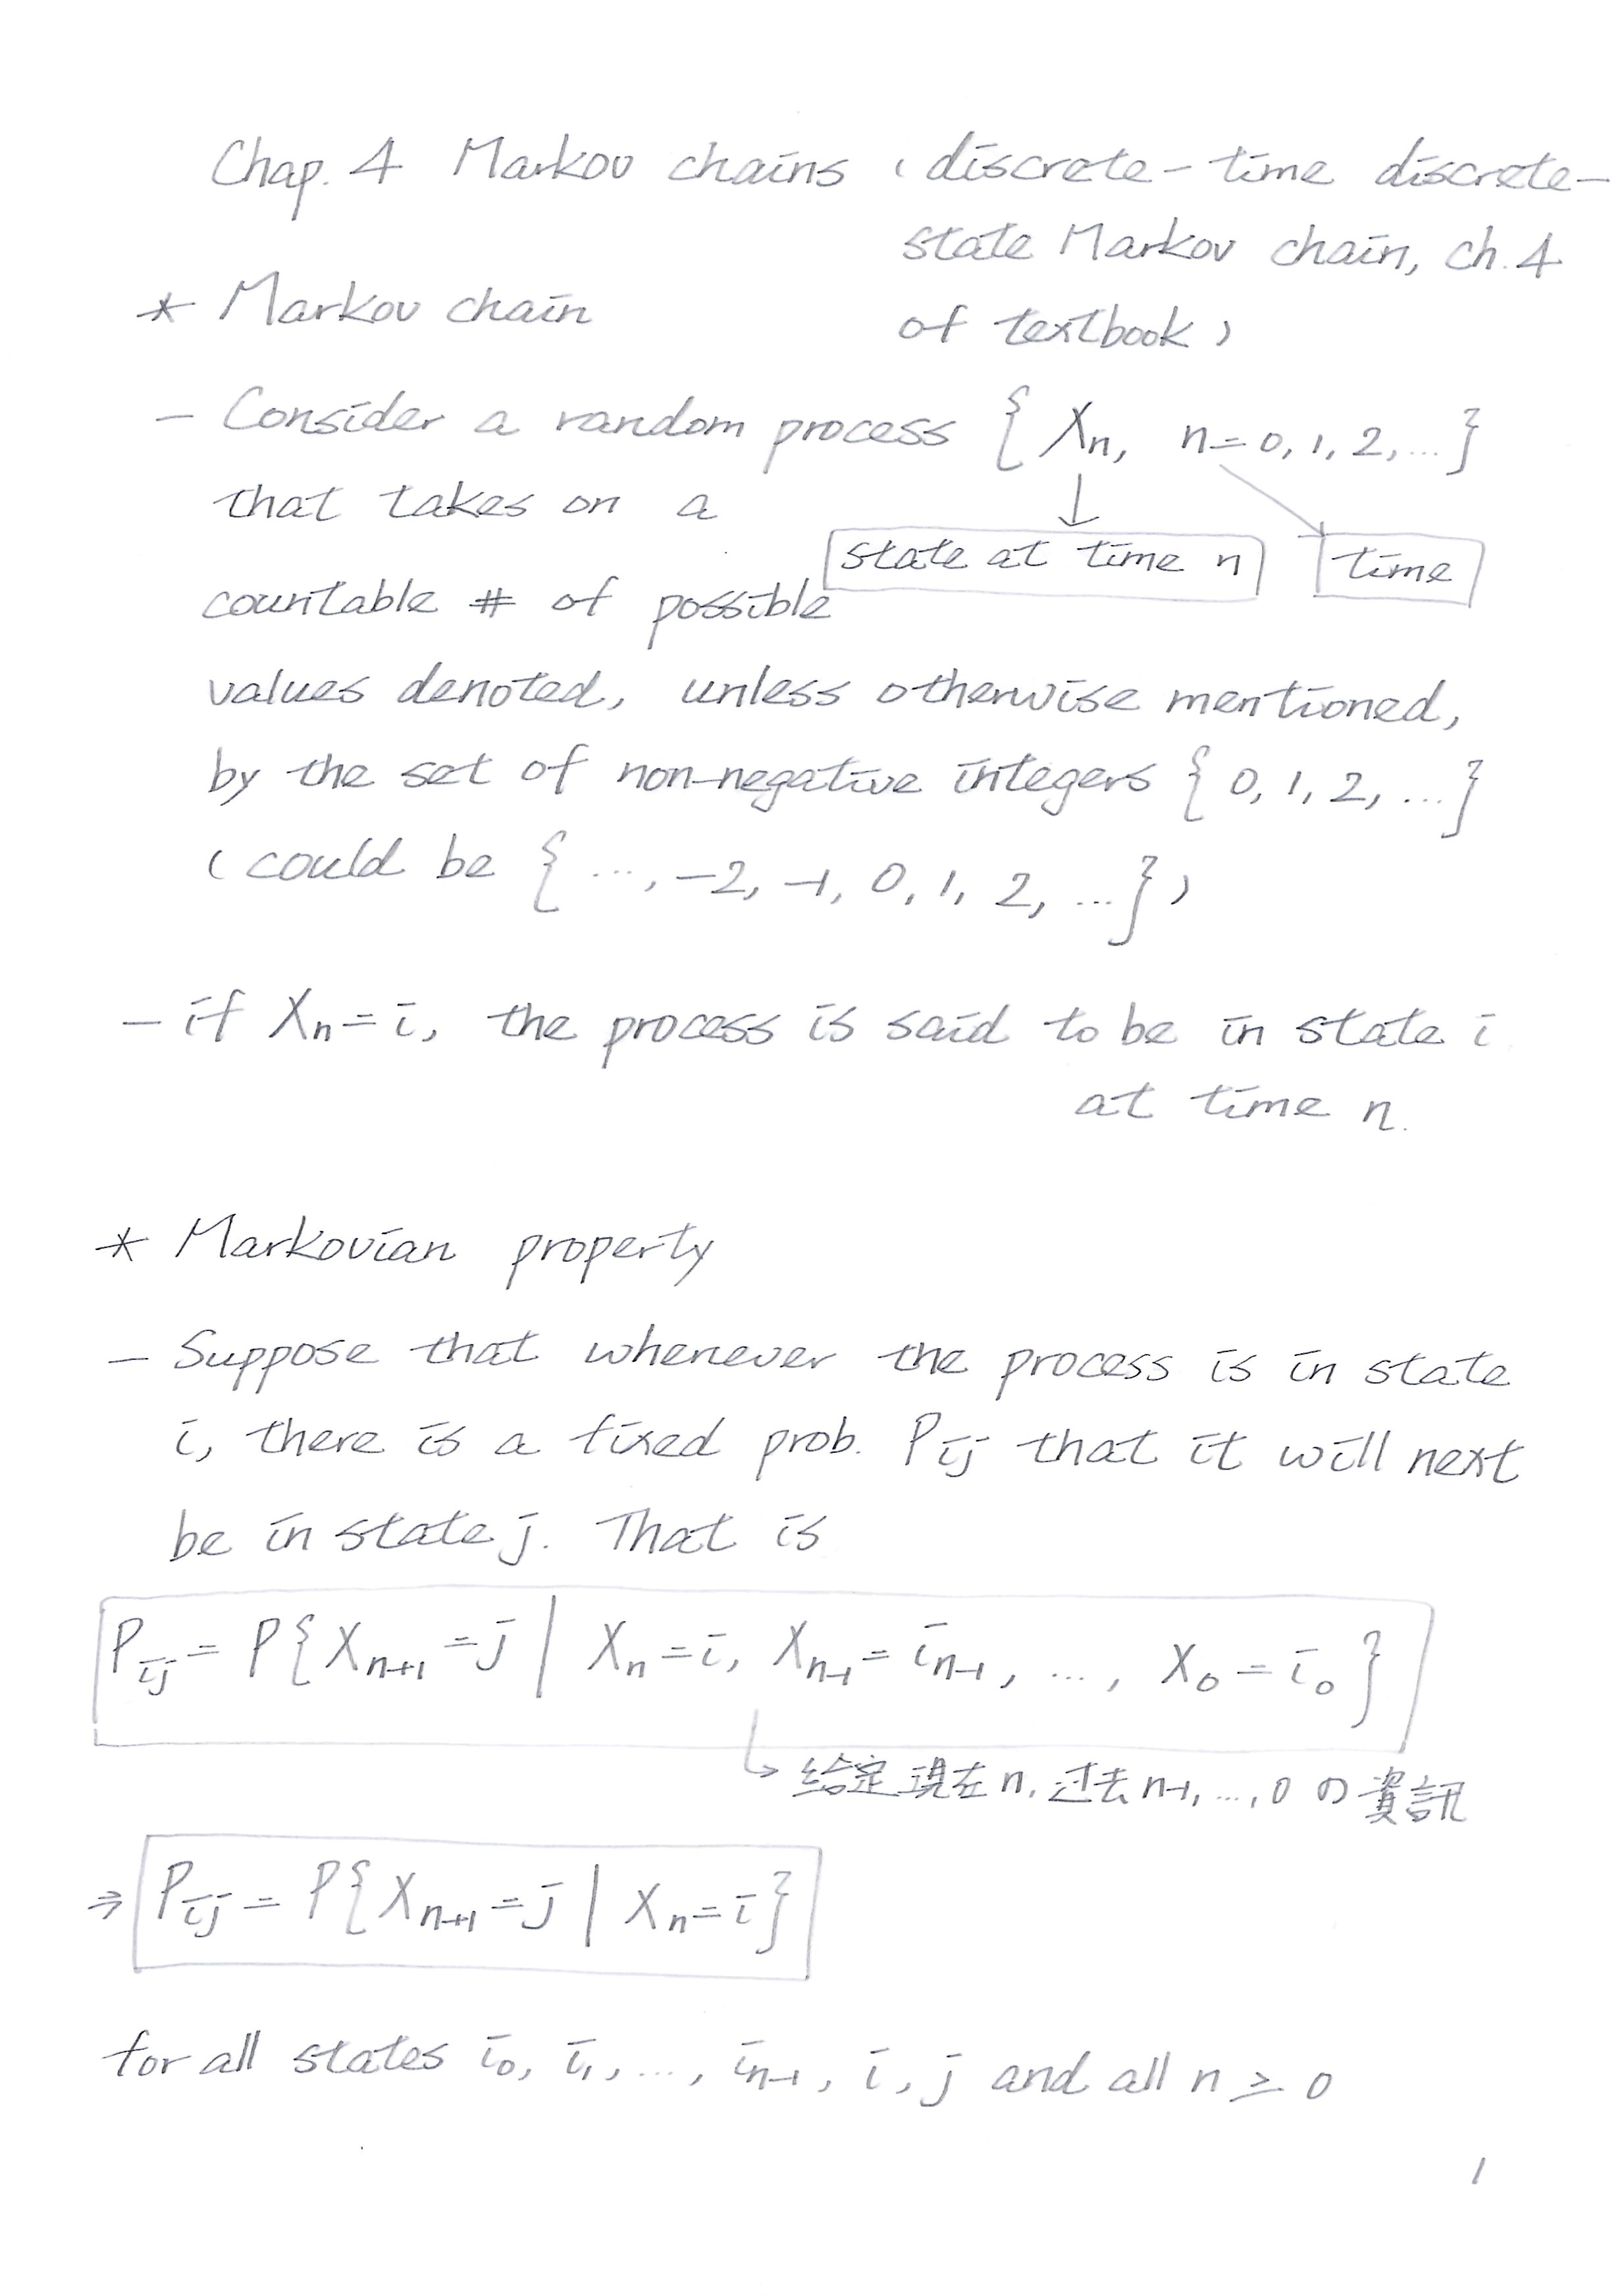 Chap. 4 Markov chains (discrete-time discrete-
state Markov chain, ch. 4
of textbook)
* Markov chain
- Consider a random process { Xn, n=0, 1, 2, ... }
that takes on a
state at time n
time
countable # of possible
values denoted, unless otherwise mentioned,
by the set of non-negative integers { 0, 1, 2, ... }
(could be { ..., -2, -1, 0, 1, 2, ... })
- if Xn = i, the process is said to be in state i
at time n.
* Markovian property
- Suppose that whenever the process is in state
i, there is a fixed prob. Pij that it will next
be in state j. That is
Pij = P{ Xn+1 = j | Xn = i, Xn-1 = in-1, ..., X0 = i0 }
↳ 给定現在 n, 过去 n-1, ..., 0 の資訊
⇒ Pij = P{ Xn+1 = j | Xn = i }
for all states i0, i1, ..., in-1, i, j and all n ≥ 0
1